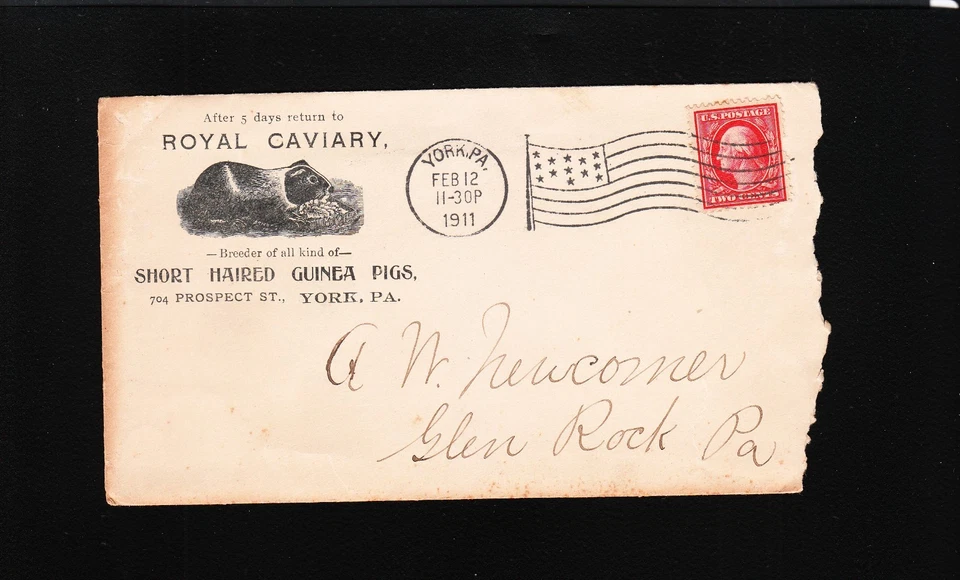 After 5 days return to
ROYAL CAVIARY,
—Breeder of all kind of—
SHORT HAIRED GUINEA PIGS,
704 PROSPECT ST., YORK, PA.
YORK, PA.
FEB 12
11-30P
1911
U.S. POSTAGE
TWO CENTS
A W. Newcomer
Glen Rock Pa